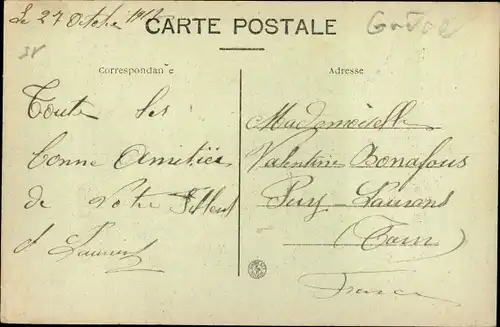 Le 27 Octobre 1917
CARTE POSTALE
Grèce
Correspondance
Adresse
Toute les
bonne Amitiées
de Votre filleul
Laurent
Mademoiselle
Valentine Bonafous
Puy-Laurans
(Tarn)
France